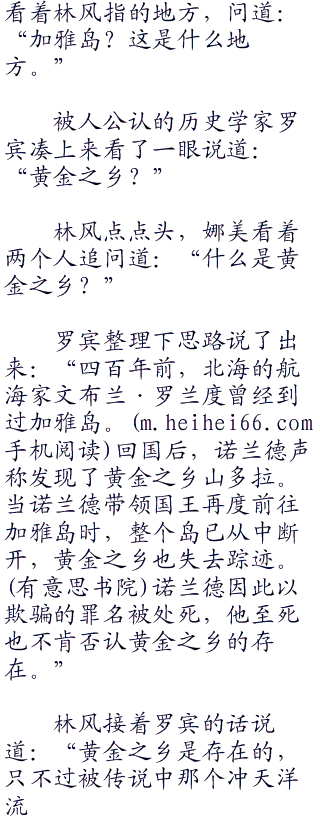 看着林风指的地方，问道：
“加雅岛？这是什么地
方。”
被人公认的历史学家罗
宾凑上来看了一眼说道：
“黄金之乡？”
林风点点头，娜美看着
两个人追问道：“什么是黄
金之乡？”
罗宾整理下思路说了出
来：“四百年前，北海的航
海家文布兰·罗兰度曾经到
过加雅岛。(m.heihei66.com
手机阅读)回国后，诺兰德声
称发现了黄金之乡山多拉。
当诺兰德带领国王再度前往
加雅岛时，整个岛已从中断
开，黄金之乡也失去踪迹。
(有意思书院)诺兰德因此以
欺骗的罪名被处死，他至死
也不肯否认黄金之乡的存
在。”
林风接着罗宾的话说
道：“黄金之乡是存在的，
只不过被传说中那个冲天洋
流